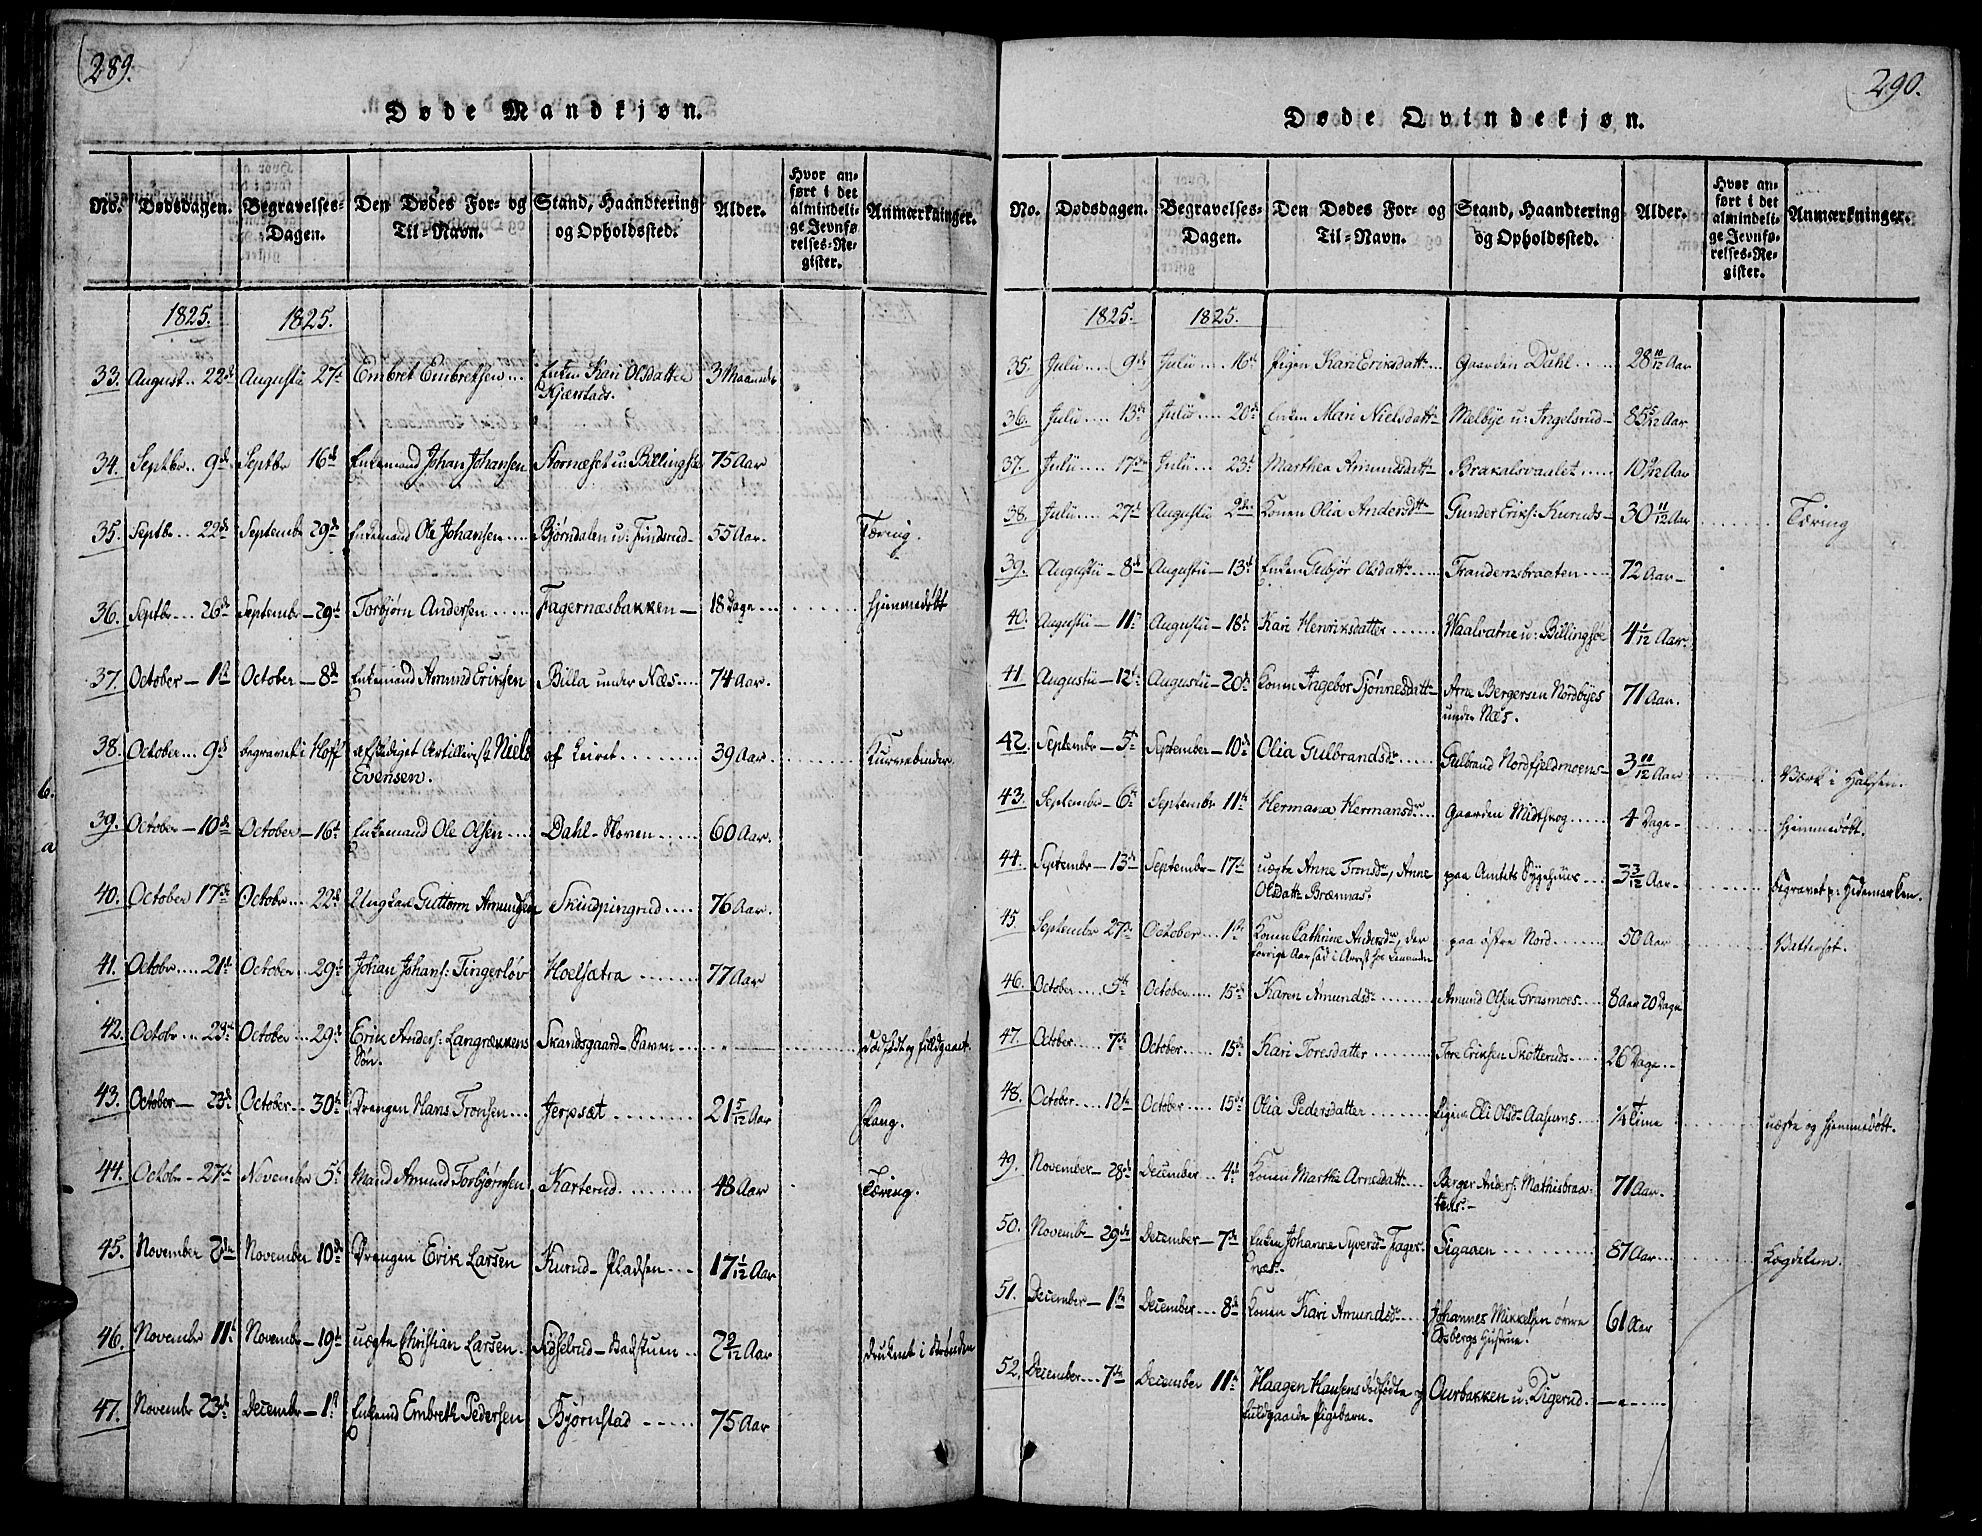 289.
Døde Mandkjøn.
No. Dødsdagen. Begravelses-Dagen. Den Dødes For- og Til-Navn. Stand, Haandtering og Opholdssted. Alder. Hvor anført i det almindelige Jevnførelses-Register. Anmærkninger.
1825. 1825.
33. August .. 22de Augusti 27de Embret Embretsen ... Enken Kari Olsdatter 3 Maaneder
Kjærstads.
34. Septbr .. 9de Septbr 16de Enkemand Johan Johansen Stornæset u: Billingsøe 75 Aar
35. Septbr .. 22de Septembr 29de Enkemand Ole Johansen .... Bjørndalen u: Findsrud 55 Aar. Tæring.
36. Septbr ... 26de Septembr 29de Torbjørn Andersen ..... Fagernæsbakken 18 Dage .... hjemmedøbt
37. October 1ste October 8de Enkemand Amund Eriksen Billa under Næs .... 74 Aar.
38. October ... 9de begravet i Hoff afskediget Artillerist Niels af Leiret ........ 39 Aar ........ Kurvebinder
Evensen.
39. October 10de October 16de Enkemand Ole Olsen .... Dahl-Skoven ...... 60 Aar.
40. October 17de Octobr ... 22de Ungkar Guttorm Amundsen Skindpingrud ..... 76 Aar.
41. Octobr ..... 21de October .. 29de Johan Johans: Tingerløv Hoelsætra ........ 77 Aar
42. Octobr ... 23de October ... 29de Erik Anders: Langrækkens Skandsgaard-Saven .... dødfødt og fuldgaaet.
Søn.
43. October 23de October .. 30te Drengen Hans Tronsen ... Jerpsæt ........ 21 5/12 Aar
44. Octobr 27de November 5te Mand Amund Torbjørnsen Karterud ........ 48 Aar Tæring.
45. November November 10de Drengen Erik Larsen Kurud-Pladsen ... 17 1/12 Aar
46. Novembr 11te Novembr 19de uægte Christian Larsen. Badstuen .. Aar druknet i Brønden
47. Novembr 23de Decembr 1ste Enkemd Embreth Pedersen Bjørnstad ..... 75 Aar
290.
Døde Qvindekjøn.
No. Dødsdagen. Begravelses-Dagen. Den Dødes For- og Til-Navn. Stand, Haandtering og Opholdssted. Alder. Hvor anført i det almindelige Jevnførelses-Register. Anmærkninger.
1825. 1825.
35. Julii .... 9de Julii .... 16de Pigen Kari Eriksdattr ... Gaarden Dahl ..... 28 10/12 Aar
36. Julii .... 13de Julii .... 20de Enken Mari Nielsdattr Mælbye u: Ingelsrud 85 5/12 Aar
37. Julii .... 17de Julii .... 23de Marthea Amundsdattr Brakalsvaalet ..... Aar
38. Julii .... 27de Augusti 2den Konen Olia Andersdttr Gunder Eriks: Kuruds 30 11/12 Aar ........ Tæring
39. Augusti 8de Augusti 13de Enken Gubjør Olsdattr ..... Trandemsbraaten .... 72 Aar
40. Augusti 11te Augusti 18de Kari Henriksdatter ........ Waalvatne u: Billingsøe 4 1/12 Aar.
41. Augusti 12te Augusti 20de Konen Ingebor Sjønnesdattr Arne Bergersen Nordbyes 71 Aar.
under Næs.
42. Septembr 5te September 10de Olia Gulbrandsdr ..... Gulbrand Nordfjeldmoens 3 11/12 Aar ........ Værk i Halsen.
43. Septembr 6te Septembr 11te Hermana Hermansdr .... Gaarden Midtskog ..... 4 Dage ........ hjemmedøbt.
44. Septembr 13de Septembr 17de uægte Anne Tronsdr, Anne paa Amtets Sygehuus ... 3 3/12 Aar ........ begravet p: Hedemarken.
Olsdattr Brænnas.
45. Septembr 27de October ... 1ste Konen Cathrine Andersdr, der paa østre Nord ........ 50 Aar
forrige Aar sad i Arrest hos Lensmanden
46. October ..... 5te October ..... 15de Karen Amundsdr ........ Amund Olsen Grasmoes .... 8 Aar 20 Dage
47. October .... 7de October ..... 15de Kari Toresdatter ........ Tore Eriksen Skotteruds ..... 26 Dage ..
48. October .... 12te October ..... 15de Olia Pedersdatter ........ Pigen Eli Olsdr Aasums .... ¼ Time ........ uægte og hjemmedøbt.
49. November 28de December 4de Konen Marthe Arnesdattr .... Berger Anders: Mathisbraa- 71 Aar.
tens.
50. Novembr 29de December 7de Enken Johanne Syversdr Fager- Sigaaen ........ 87 Aar ........ Lægdelem.
næs.
51. December 1ste December ... 8de Konen Kari Amundsdr ...... Johannes Mikkelsen øvre 61 Aar
Æsbergs Hustrue.
52. December ... 7de December 11te Haagen Hansens dødfødte og Ourbakken u: Digerud.
fuldgaaede Pigebarn.